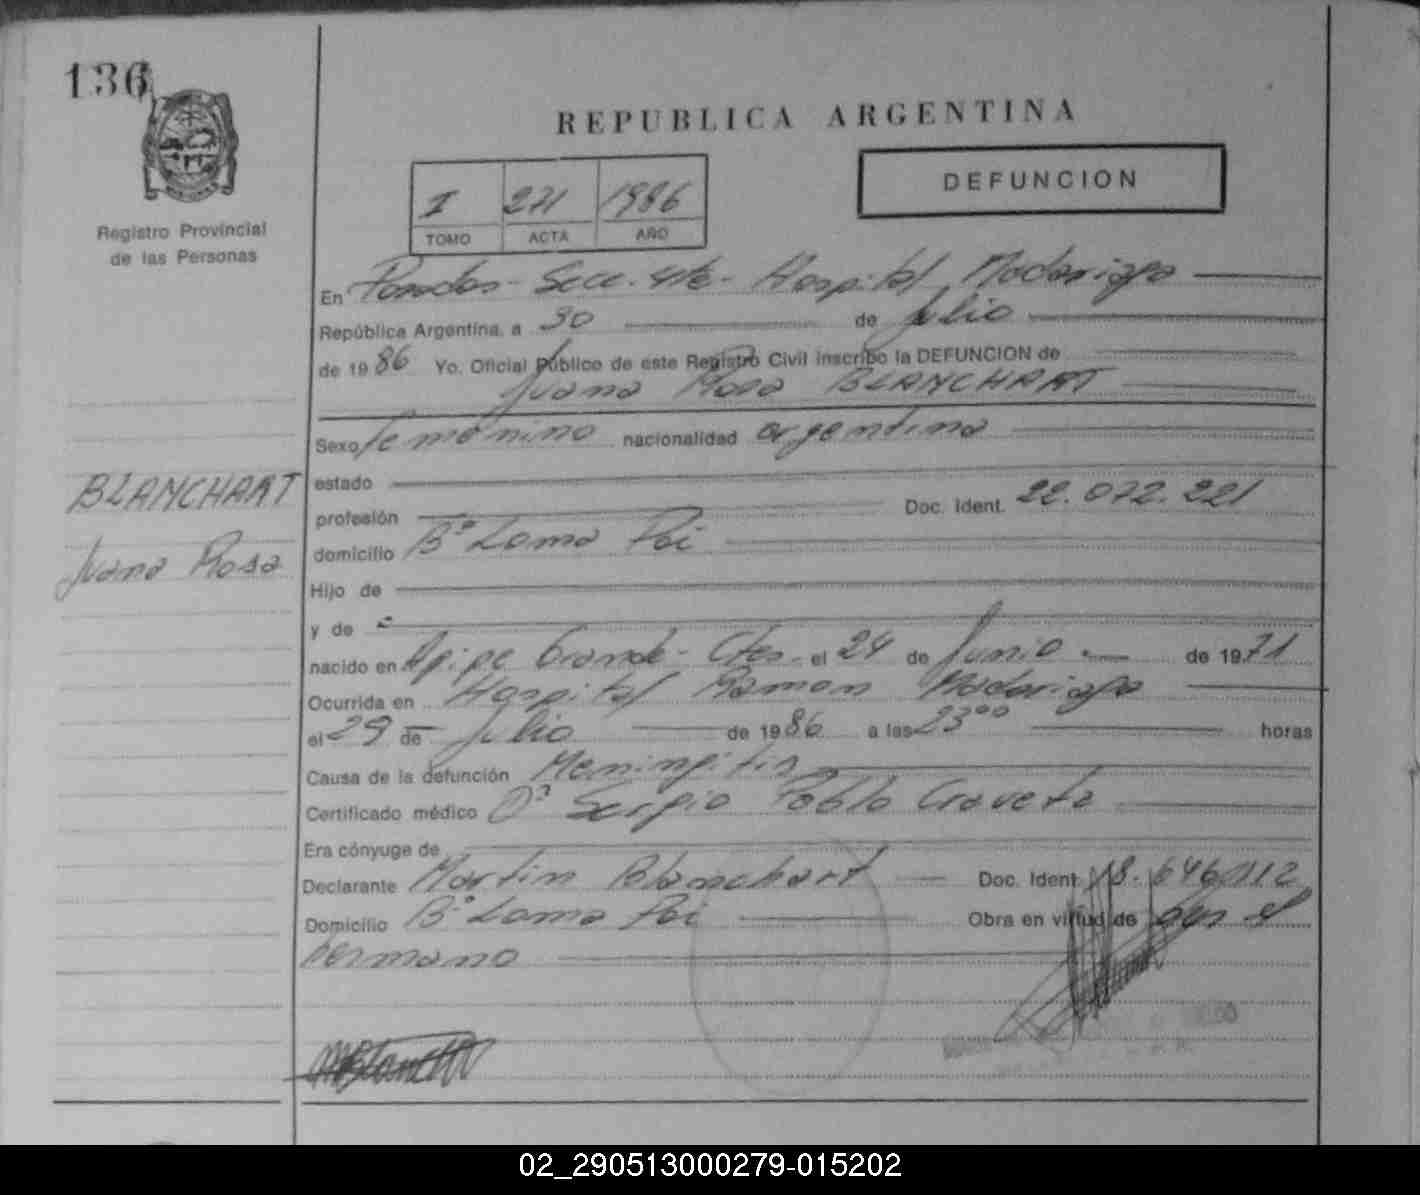 136
REPUBLICA ARGENTINA
DEFUNCION
Registro Provincial
de las Personas
I 271 1986
TOMO ACTA AÑO
En Posadas - Secc. 4ta - Hospital Madariaga
República Argentina, a 30 de Julio
de 1986 Yo. Oficial Público de este Registro Civil inscribo la DEFUNCION de
Juana Rosa BLANCHART
Sexo femenino nacionalidad argentina
estado
BLANCHART
profesión Doc. Ident. 22.072.221
domicilio B° Loma Poi
Juana Rosa
Hijo de
y de
nacido en Apipe Grande - Ctes. el 24 de Junio de 1971
Ocurrida en Hospital Ramon Madariaga
el 29 de Julio de 1986 a las 23°° horas
Causa de la defunción Meningitis
Certificado médico Sergio Pablo Craveto
Era cónyuge de
Declarante Martin Blanchart Doc. Ident. 18.646.112
Domicilio B° Loma Poi Obra en virtud de ser el
hermano
02_290513000279-015202